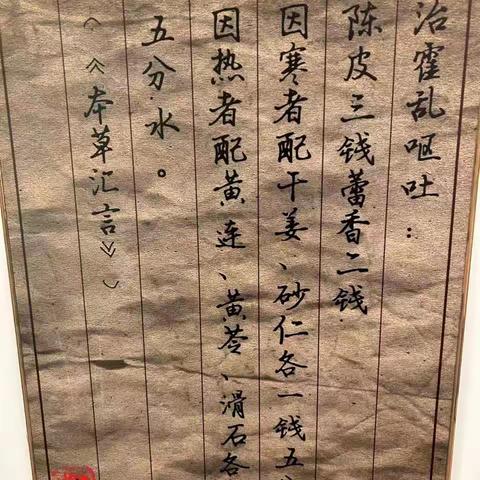 治霍乱呕吐：
陈皮三钱藿香二钱
因寒者配干姜、砂仁各一钱五分
因热者配黄连、黄芩、滑石各
五分.水。
（《本草汇言》）